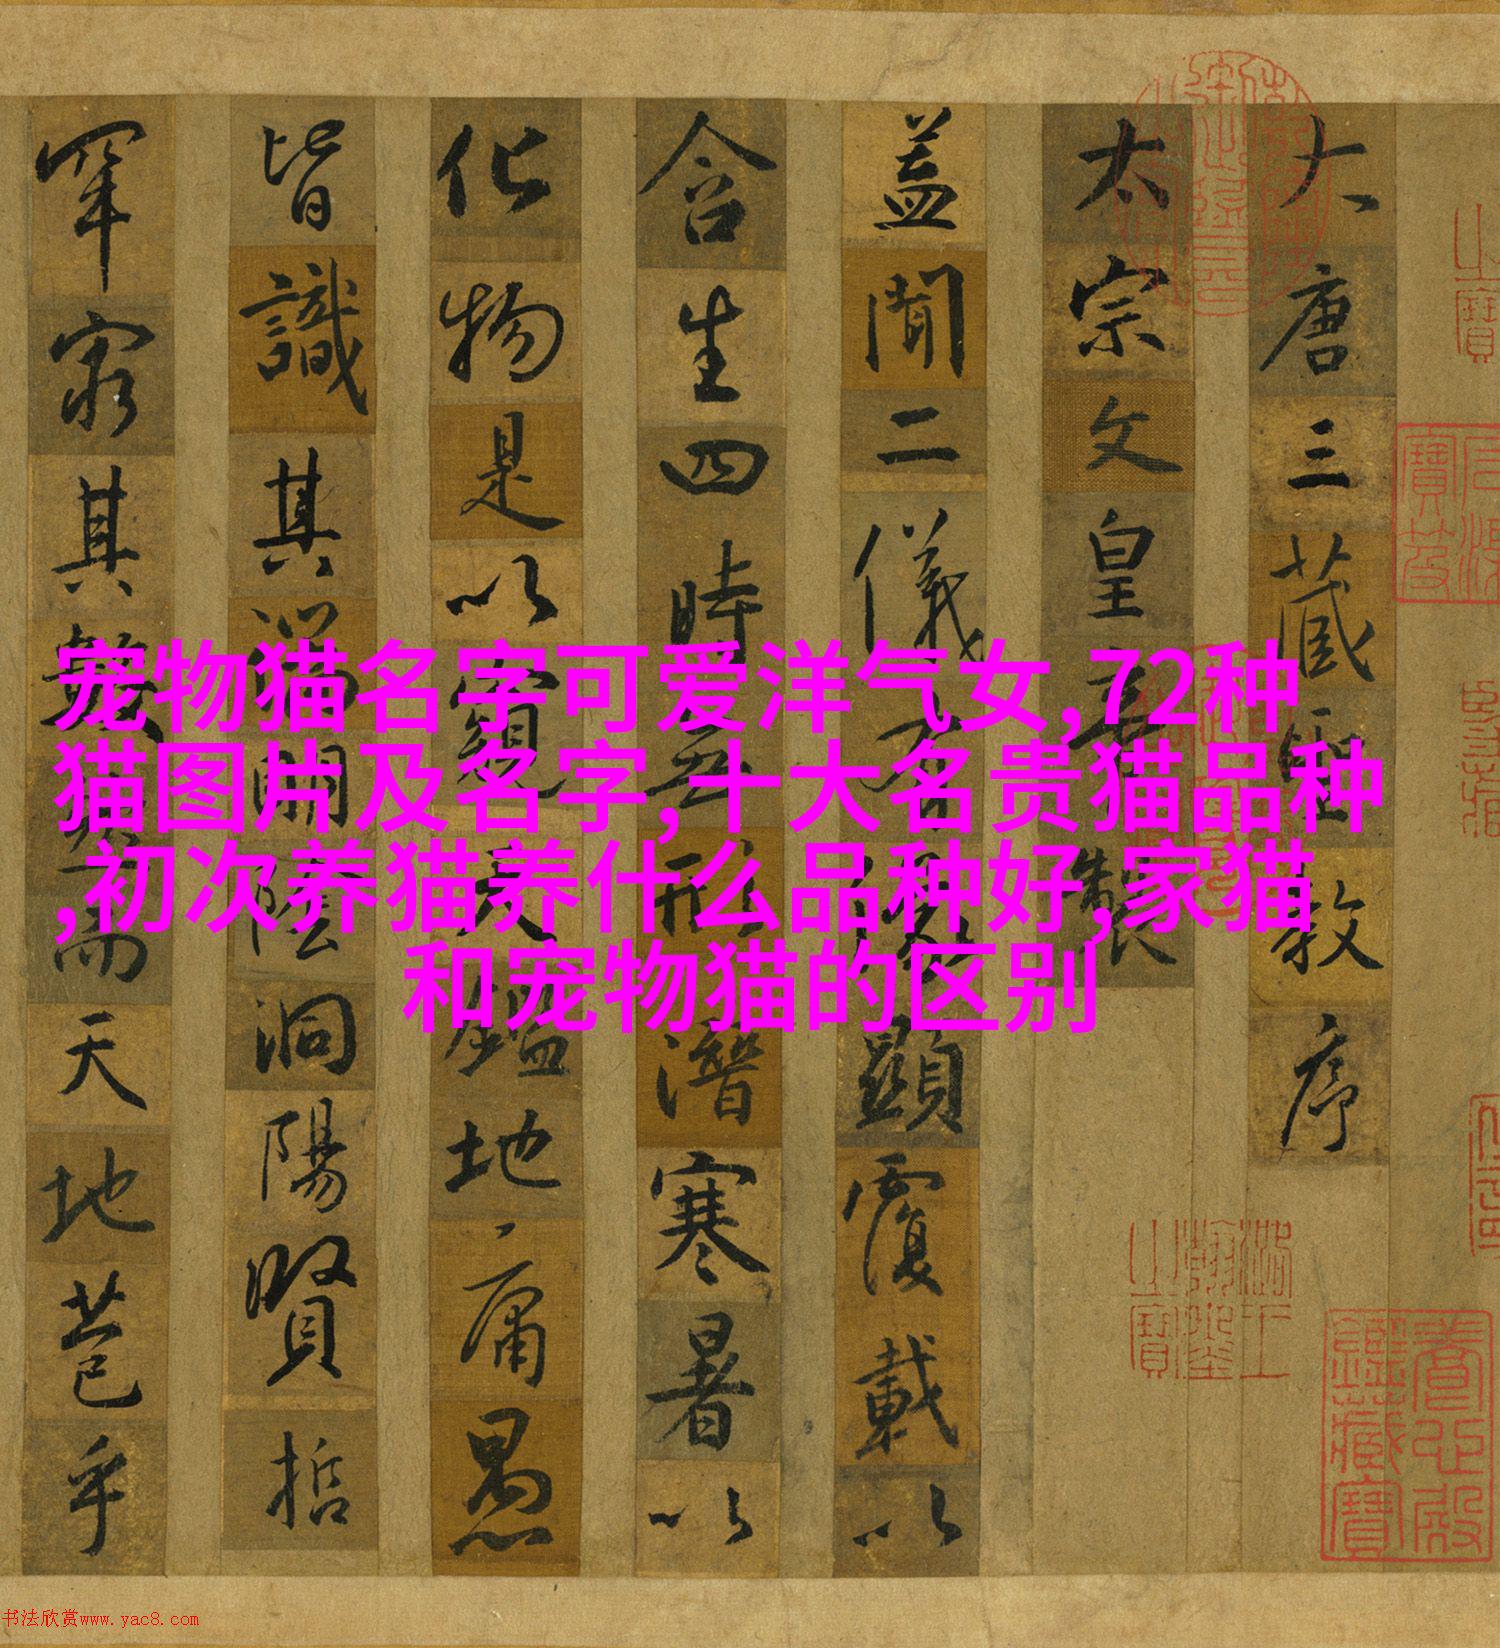 大唐三藏聖教序
太宗文皇帝製
蓋聞二儀有像顯覆載以
含生四時無形潛寒暑以
化物是以窺天鑑地庸愚
皆識其端明陰洞陽賢哲
罕窮其數然而天地苞乎
宠物猫名字可爱洋气女,72种
猫图片及名字,十大名贵猫品种
,初次养猫养什么品种好,家猫
和宠物猫的区别
书法欣赏www.yac8.com